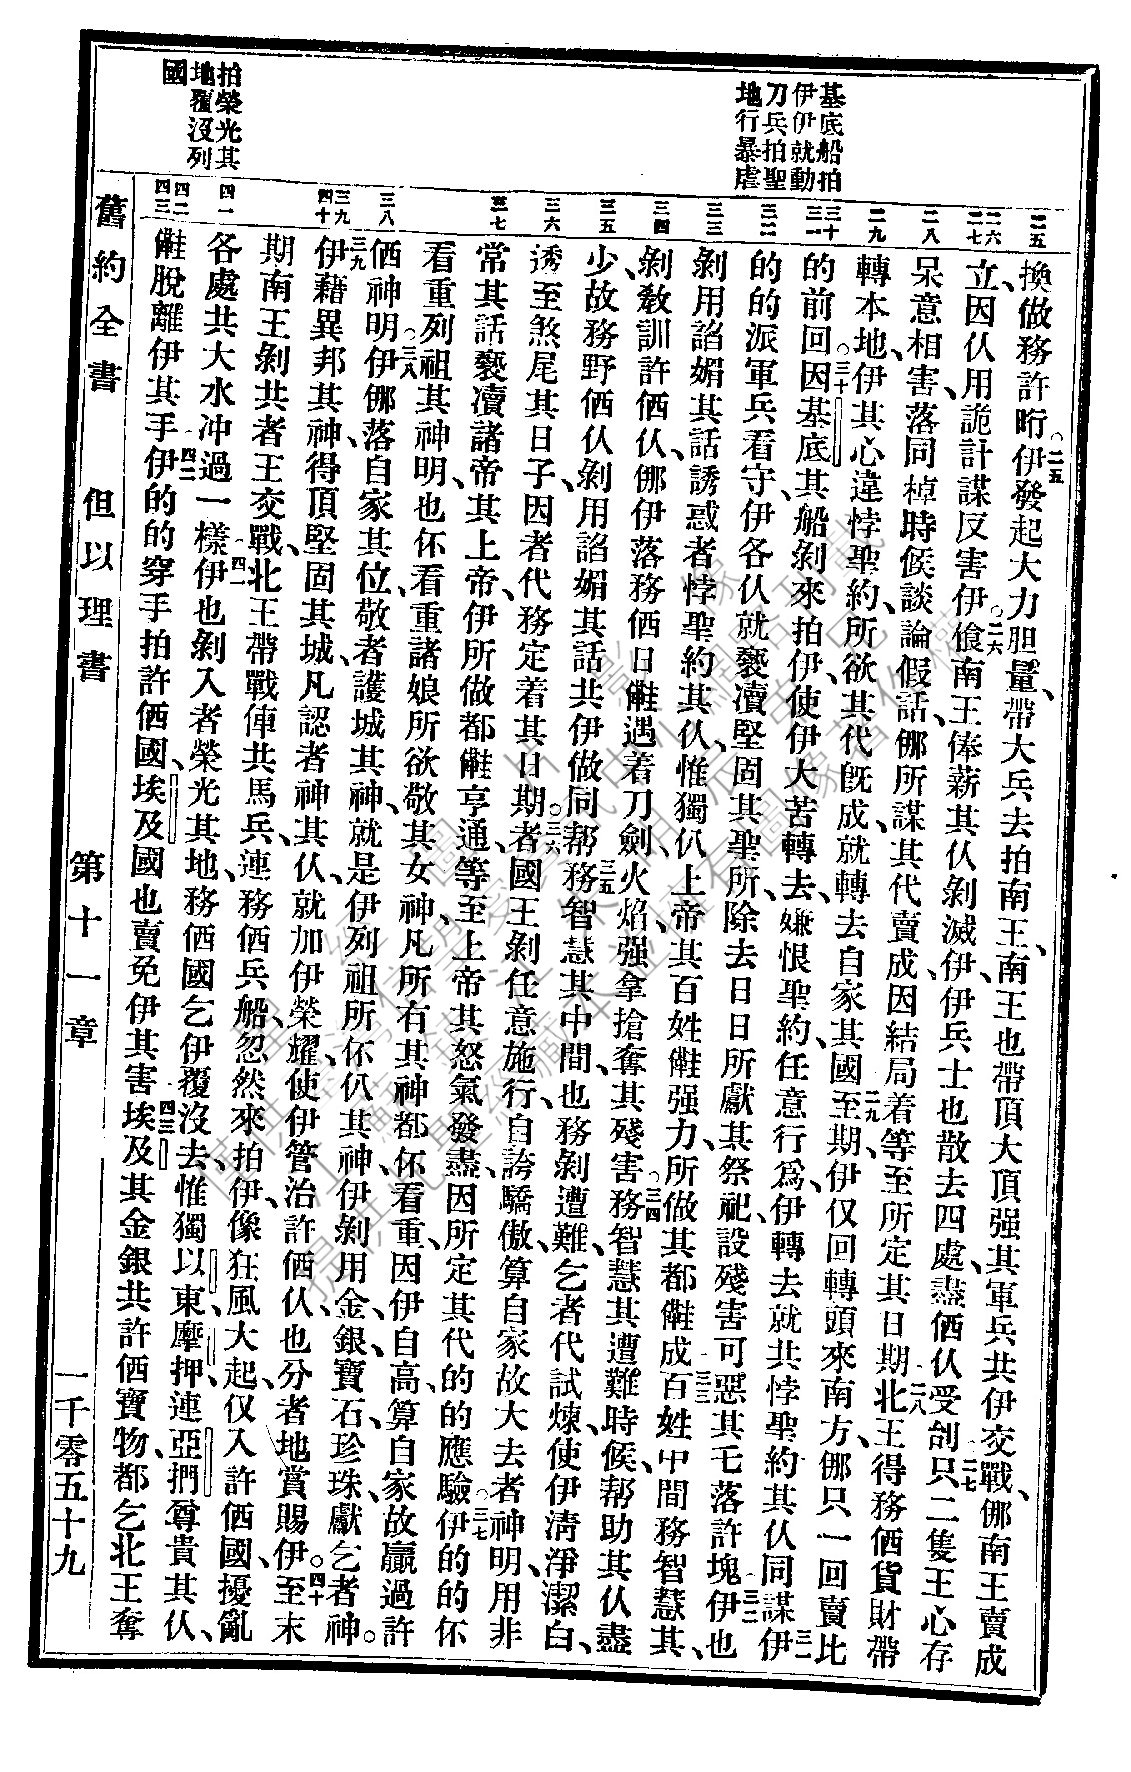 基底船拍
伊伊就動
刀兵拍聖
地行暴虐
拍榮光其
地覆沒列
國
二五
二六
二七
二八
二九
三十
三一
三二
三三
三四
三五
三六
三七
三八
三九
四十
四一
四二
四三
換做務許昕。二五伊發起大力胆量、帶大兵去拍南王、南王也帶頂大頂强其軍兵共伊交戰、㑚南王賣成
立、因仈用詭計謀反害伊。二六飡南王俸薪其仈剝滅伊、伊兵士也散去四處、盡㑚仈受刣。二七只二隻王心存
呆意相害、落同棹時候談論假話、㑚所謀其代賣成、因結局着等至所定其日期。二八北王得務㑚貨財帶
轉本地、伊其心違悖聖約、所欲其代既成就轉去自家其國。二九至期、伊仅回轉頭來南方、㑚只一回賣比
的前回。三十因基底其船剝來拍伊、使伊大苦轉去、嫌恨聖約、任意行爲、伊轉去就共悖聖約其仈同謀。三一伊
的的派軍兵看守、伊各仈就褻瀆堅固其聖所、除去日日所獻其祭祀、設殘害可惡其乇落許塊。三二伊也
剝用諂媚其話誘惑者悖聖約其仈、惟獨仈上帝其百姓𣍐强力、所做其都𣍐成。三三百姓中間務智慧其、
剝敎訓許㑚仈、㑚伊落務㑚日𣍐遇着刀劍火焰、强拿搶奪其殘害。三四務智慧其遭難時候、帮助其仈盡
少、故務野㑚仈、剝用諂媚其話共伊做同帮。三五務智慧其中間也務剝遭難、乞者代試煉、使伊清淨潔白、
透至煞尾其日子、因者代務定着其日期。三六者國王剝任意施行、自誇驕傲算自家故大去者神明、用非
常其話褻瀆諸帝其上帝、伊所做都𣍐亨通、等至上帝其怒氣發盡、因所定其代的的應驗。三七伊的的伓
看重列祖其神明、也伓看重諸娘所欲敬其女神、凡所有其神都伓看重、因伊自高、算自家故贏過許
㑚神明。三八伊㑚落自家其位、敬者護城其神、就是伊列祖所伓仈其神、伊剝用金、銀、寶石、珍珠獻乞者神。
三九伊藉異邦其神、得頂堅固其城、凡認者神其仈、就加伊榮耀、使伊管治許㑚仈、也分者地賞賜伊。四十至末
期南王剝共者王交戰、北王帶戰俥共馬兵、連務㑚兵船、忽然來拍伊、像狂風大起、仅入許㑚國、擾亂
各處、共大水冲過一樣。四一伊也剝入者榮光其地、務㑚國乞伊覆沒去、惟獨以東、摩押、連亞捫尊貴其仈、
𣍐脫離伊其手。四二伊的的穿手拍許㑚國、埃及國也賣免伊其害。四三埃及其金銀共許㑚寶物、都乞北王奪
舊約全書 但以理書 第十一章 一千零五十九